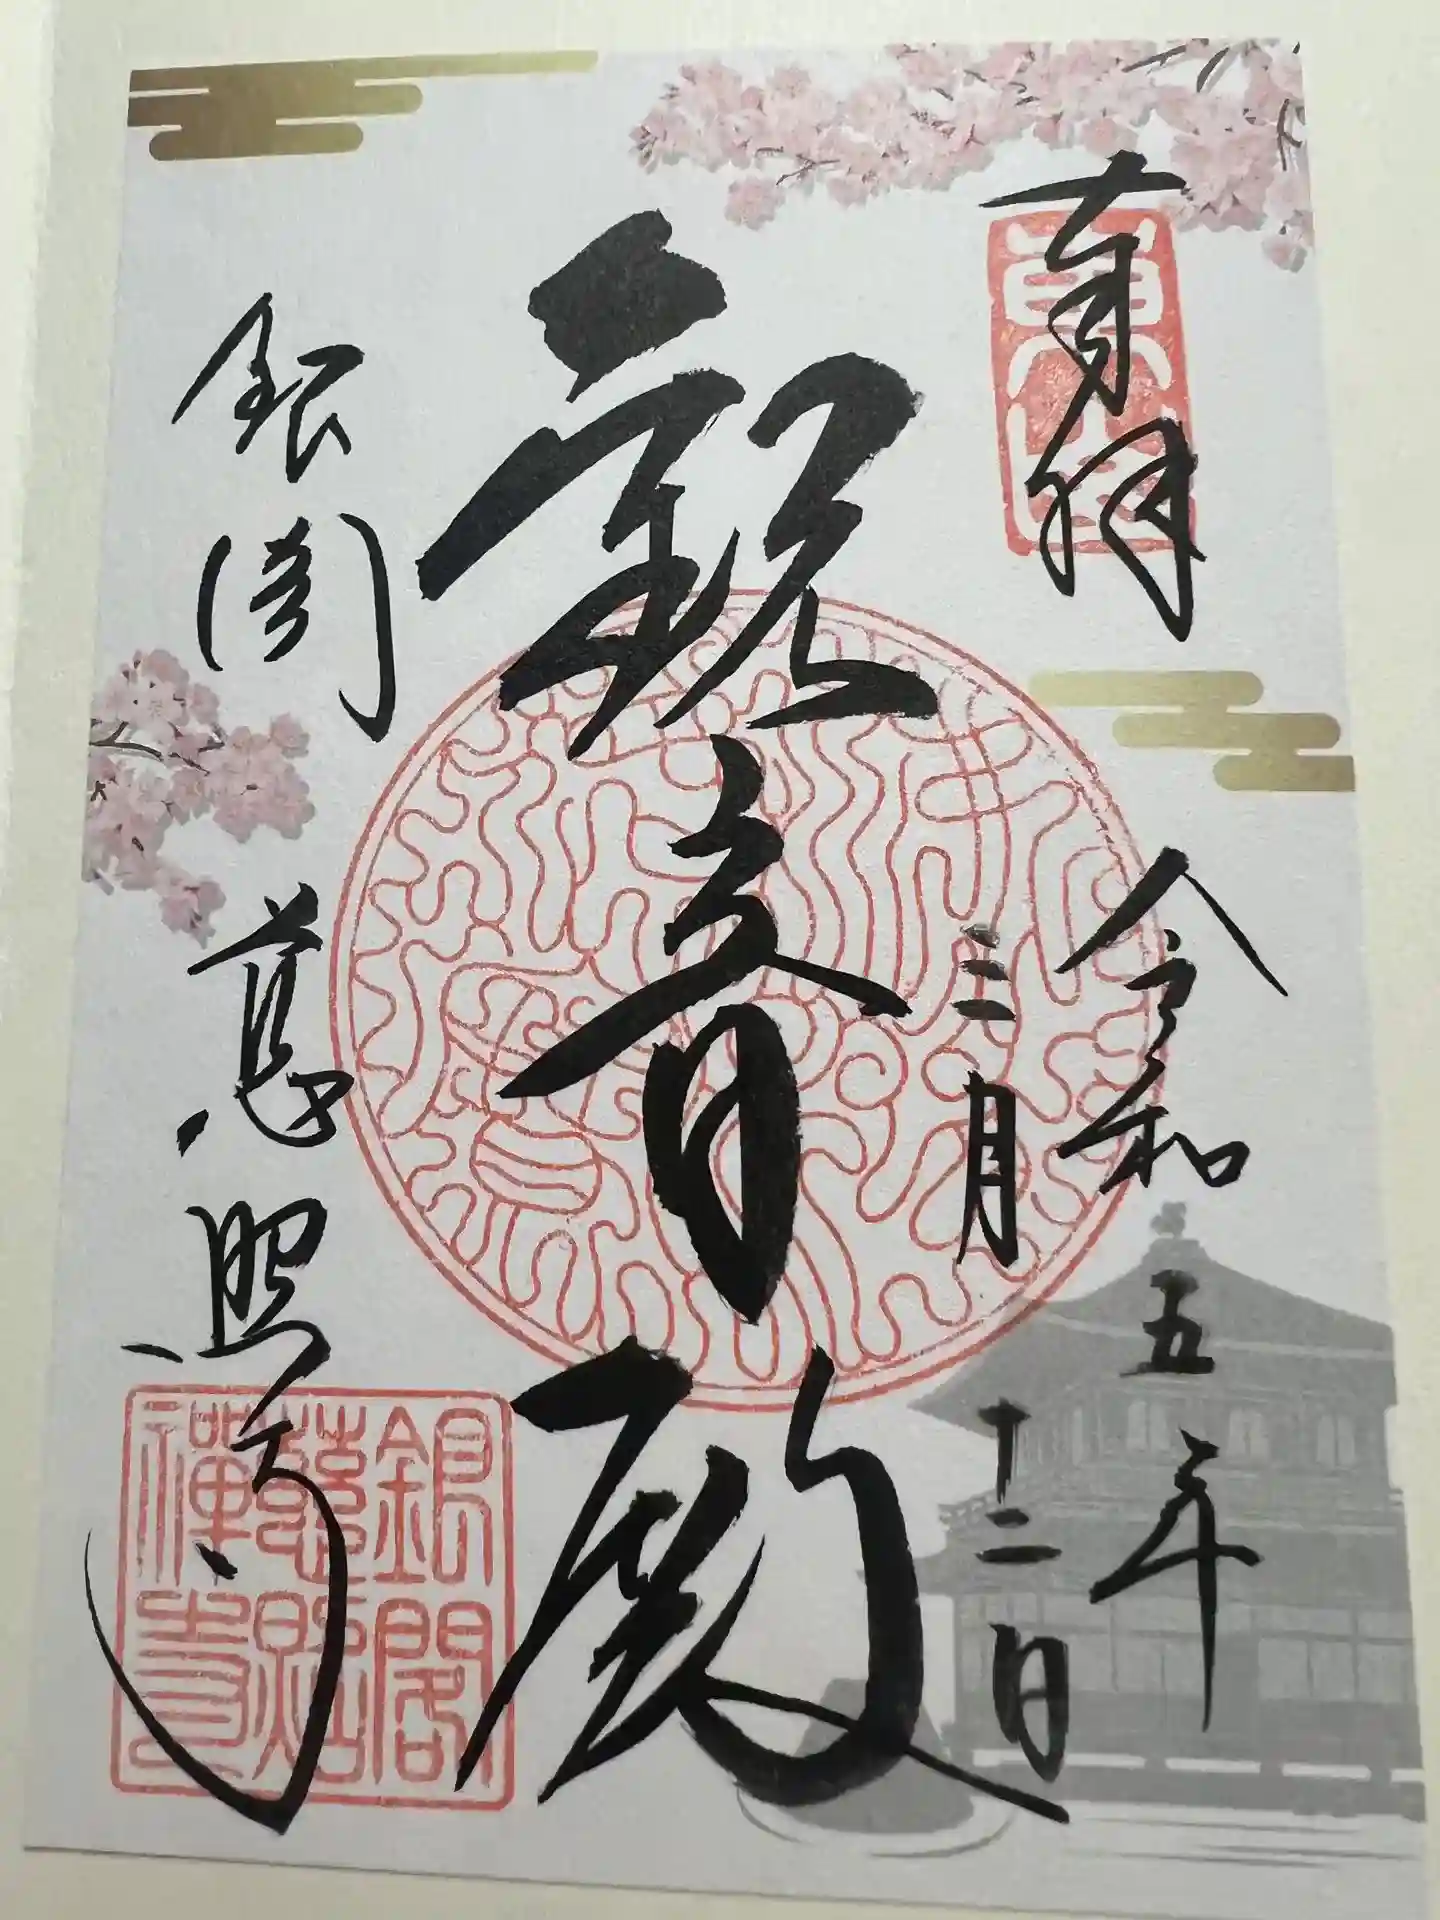 奉拝
東山
令和五年
三月十二日
観音殿
銀閣 慈照寺
銀閣
慈照
禅寺